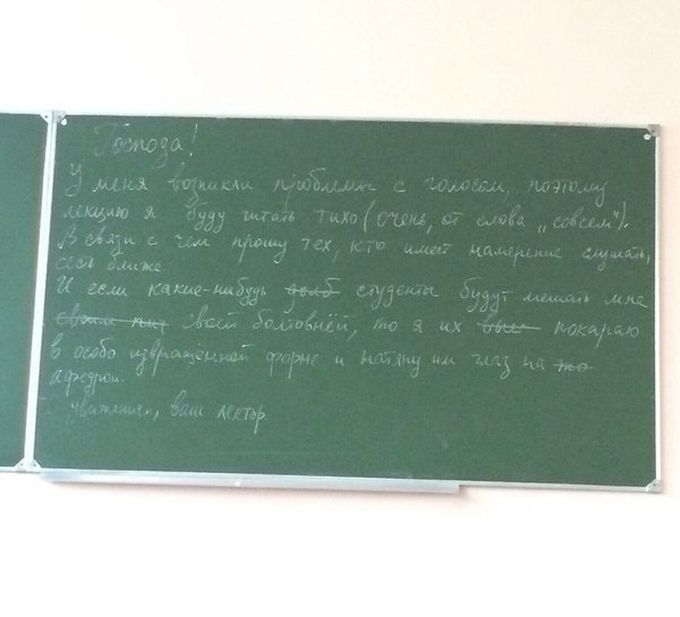 Господа!
У меня возникли проблемы с голосом, поэтому
лекцию я буду читать тихо (очень, от слова „совсем").
В связи с чем прошу тех, кто имеет намерение слушать,
сесть ближе.
И если какие-нибудь долб студенты будут мешать мне
своим пиз своей болтовнёй, то я их покараю
в особо извращённой форме и натяну им глаз на жо
афедрон.
С уважением, ваш лектор